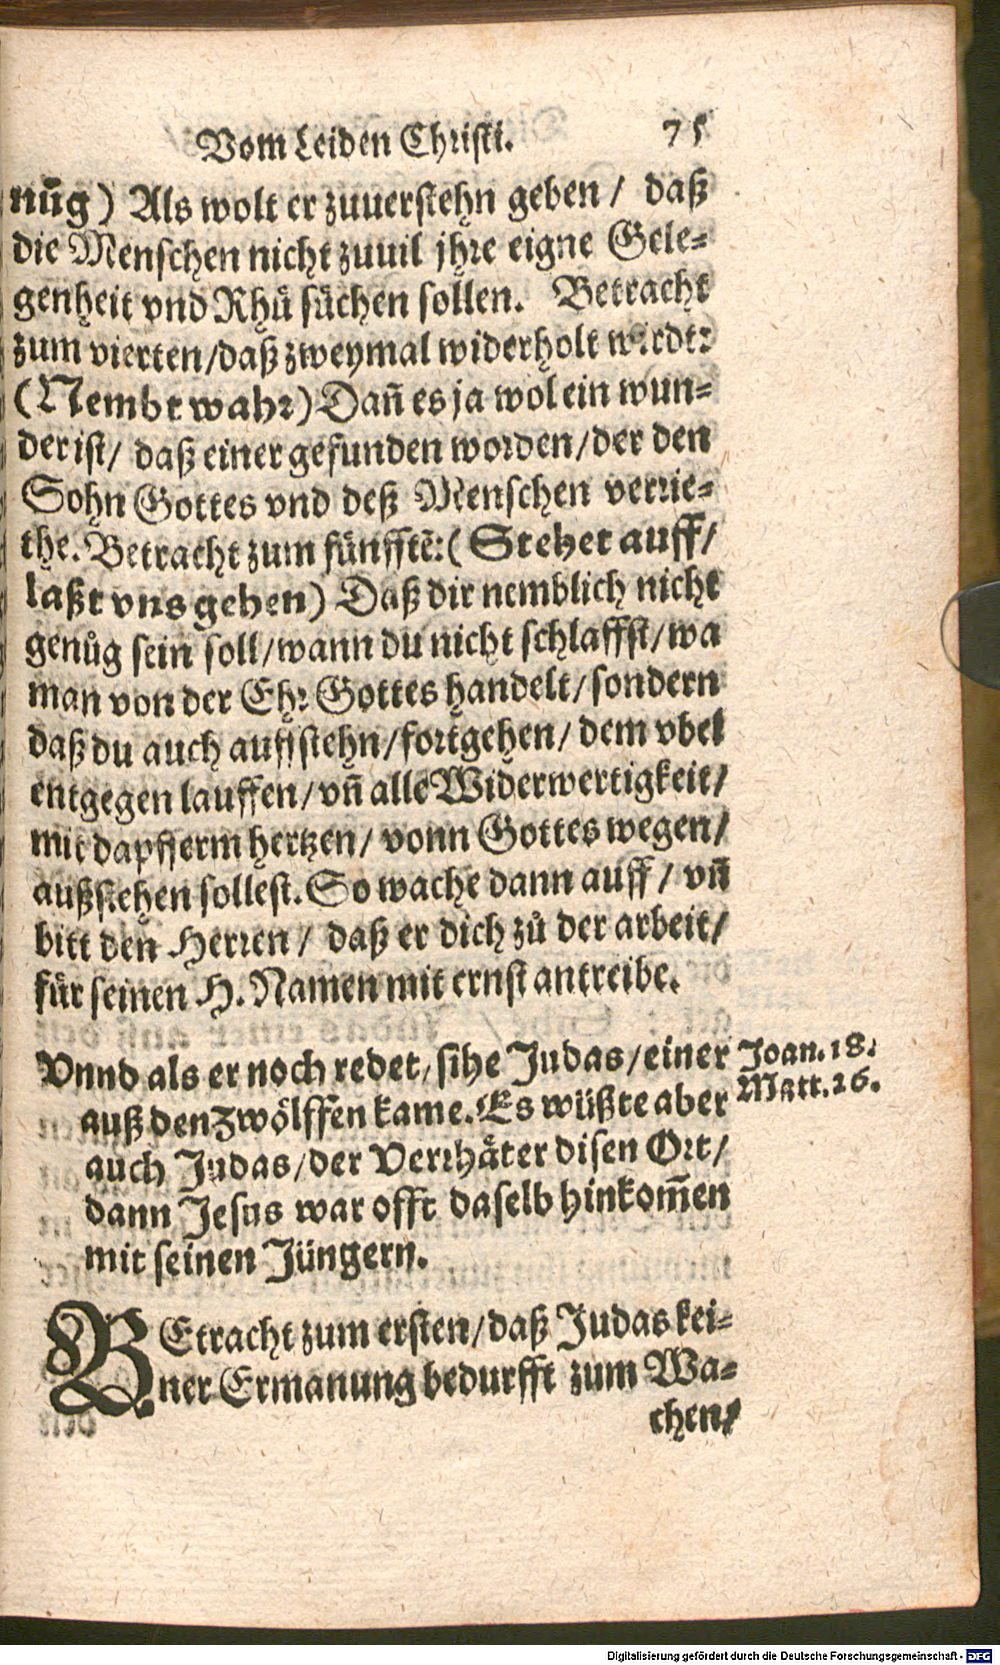 Vom Leiden Christi. 75
nūg) Als wolt er zuuerstehn geben / daß
die Menschen nicht zuuil jhre eigne Gele-
genheit vnd Rhů sůchen sollen. Betracht
zum vierten/daß zweymal widerholt wirdt:
(Nembt wahr) Dañ es ja wol ein wun-
der ist/ daß einer gefunden worden/der den
Sohn Gottes vnd deß Menschen verrie-
the. Betracht zum fünfftē: (Stehet auff/
laßt vns gehen) Daß dir nemblich nicht
genůg sein soll/wann du nicht schlaffst/wa
man von der Ehr Gottes handelt/sondern
daß du auch auffstehn/fortgehen/ dem vbel
entgegen lauffen/vñ alle Widerwertigkeit/
mit dapfferm hertzen/ vonn Gottes wegen/
außstehen sollest. So wache dann auff / vñ
bitt den Herren / daß er dich zů der arbeit/
für seinen H. Namen mit ernst antreibe.
Vnnd als er noch redet, sihe Judas/einer
auß den Zwölffen kame. Es wüßte aber
auch Judas/der Verrhäter disen Ort/
dann Jesus war offt daselb hinkom̄en
mit seinen Jüngern.
Joan. 18.
Matt. 26.
BEtracht zum ersten/daß Judas kei-
ner Ermanung bedurfft zum Wa-
chen/
Digitalisierung gefördert durch die Deutsche Forschungsgemeinschaft - DFG